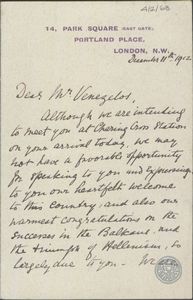 4/2/68
14, PARK SQUARE (EAST GATE),
PORTLAND PLACE,
LONDON, N.W.
December 11th 1912
Dear Mr Venezelos,
Although we are intending
to meet you at Charing Cross Station
on your arrival today, we may
not have a favorable opportunity
for speaking to you and expressing
to you our heartfelt welcome
to this country, and also our
warmest congratulations on the
successes in the Balkans, and
the triumph of Hellenism, so
largely due to you. We